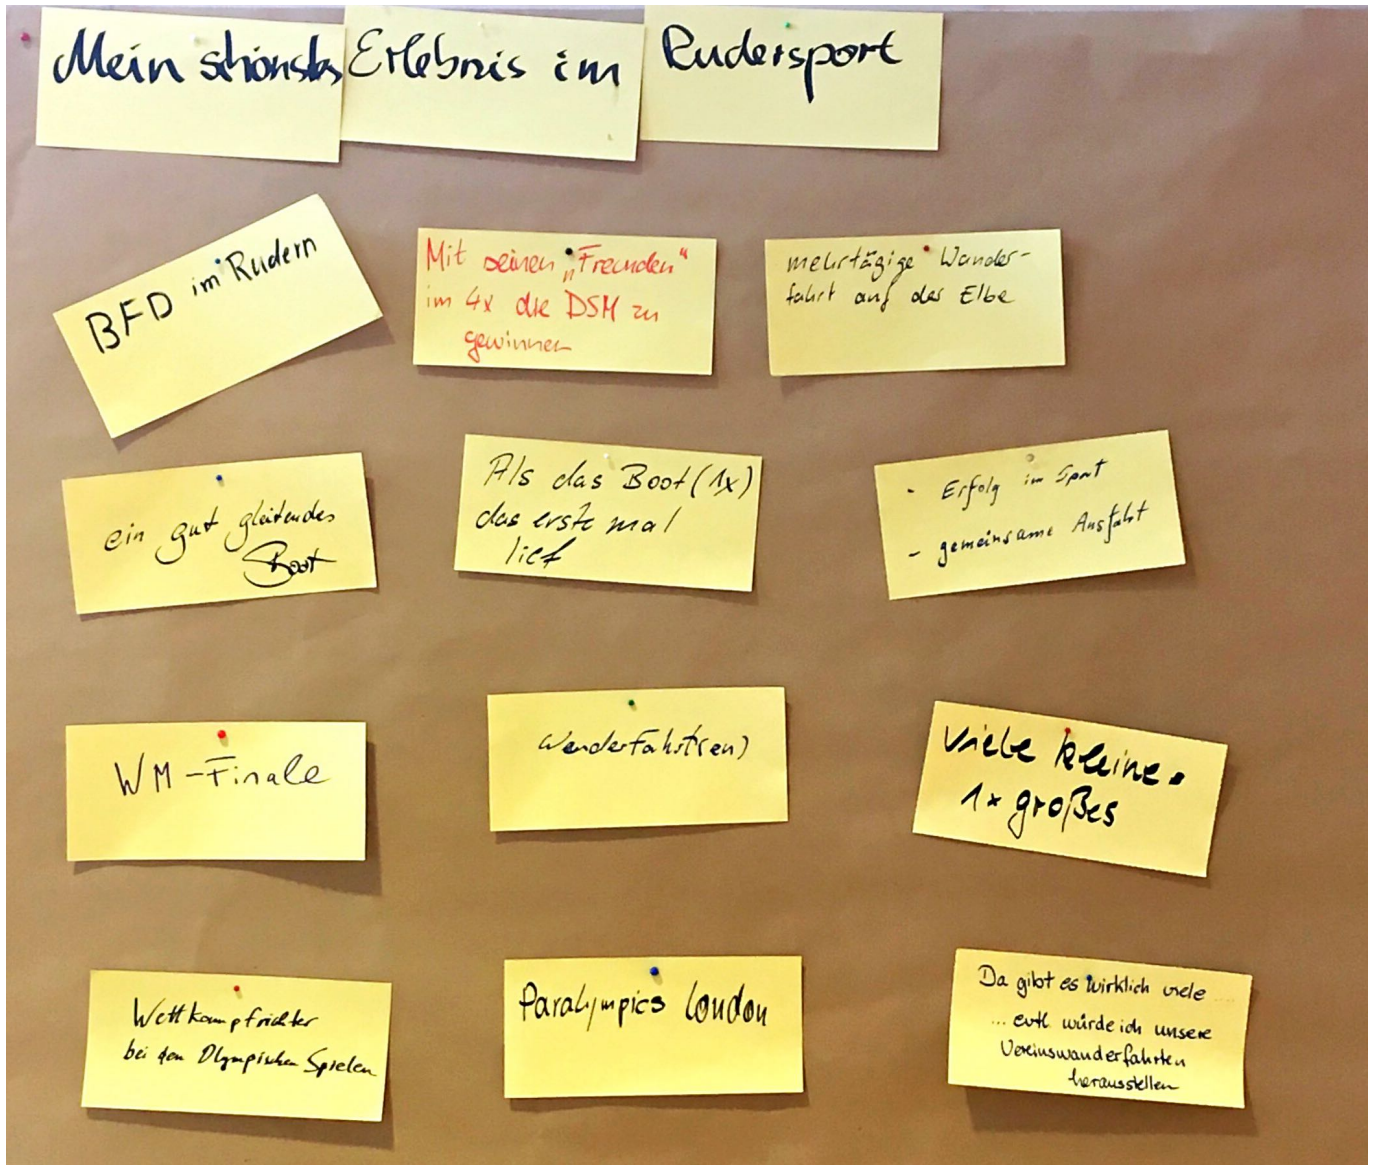 Mein schönstes Erlebnis im Rudersport
BFD im Rudern
Mit seinen „Freunden“
im 4x die DSM zu
gewinnen
mehrtägige Wander-
fahrt auf der Elbe
ein gut gleitendes
Boot
Als das Boot (1x)
das erste mal
lief
- Erfolg im Sport
- gemeinsame Ausfahrt
WM-Finale
Wanderfahrt(en)
viele kleine.
1x großes
Wettkampfrichter
bei den Olympischen Spielen
Paralympics London
Da gibt es wirklich viele ....
... evtl. würde ich unsere
Vereinswanderfahrten
herausstellen